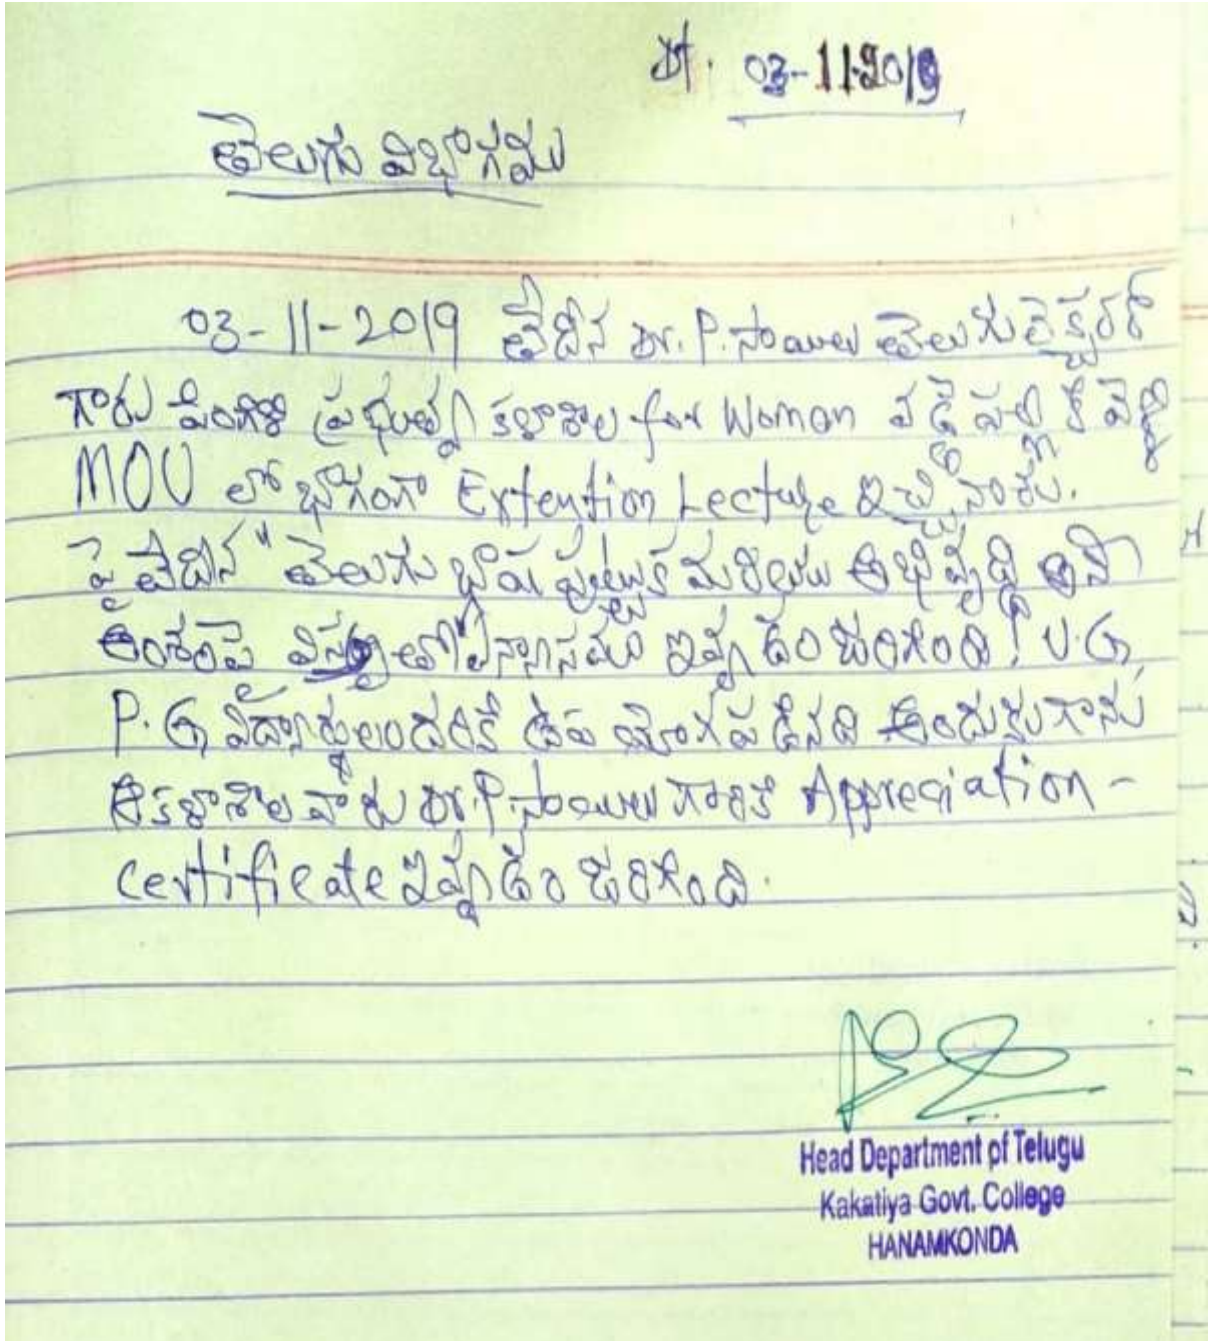 dt. 03-11-2019
తెలుగు విభాగము
03-11-2019 తేదీన Dr. P. సాయిలు తెలుగు లెక్చరర్
గారు పింగిళి ప్రభుత్వ కళాశాల for Woman వడ్డేపల్లి కి వెళ్లి
MOU లో భాగంగా Extention Lecture ఇచ్చినారు.
పై తేదిన "తెలుగు భాష పుట్టుక మరియు అభివృద్ధి అనే
అంశంపై విస్తృత ఉపన్యాసము ఇవ్వడం జరిగింది. U.G,
P.G విద్యార్థులందరికి ఉపయోగపడినది అందుకుగాను
ఆ కళాశాల వారు Dr. P. సాయిలు గారికి Appreciation -
certificate ఇవ్వడం జరిగింది.
Head Department of Telugu
Kakatiya Govt. College
HANAMKONDA